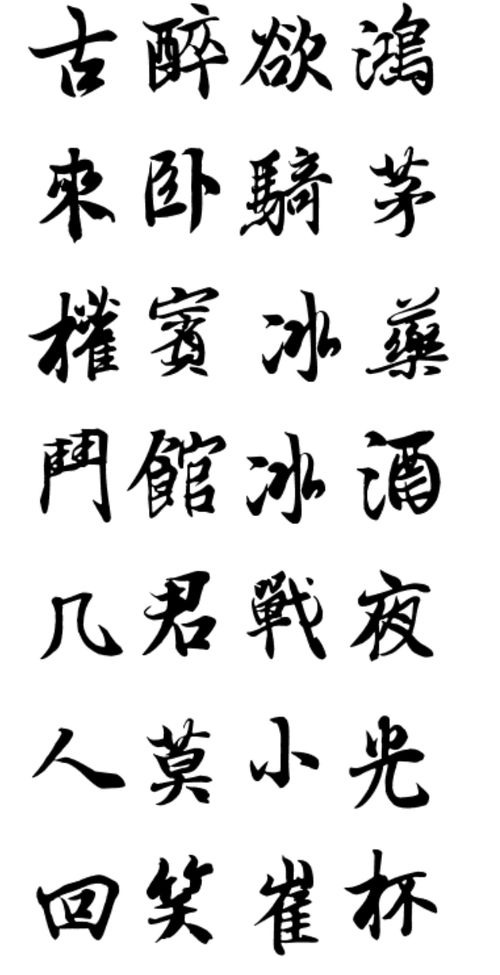 鴻茅藥酒夜光杯
欲騎冰冰戰小崔
醉卧賓館君莫笑
古來權鬥几人回